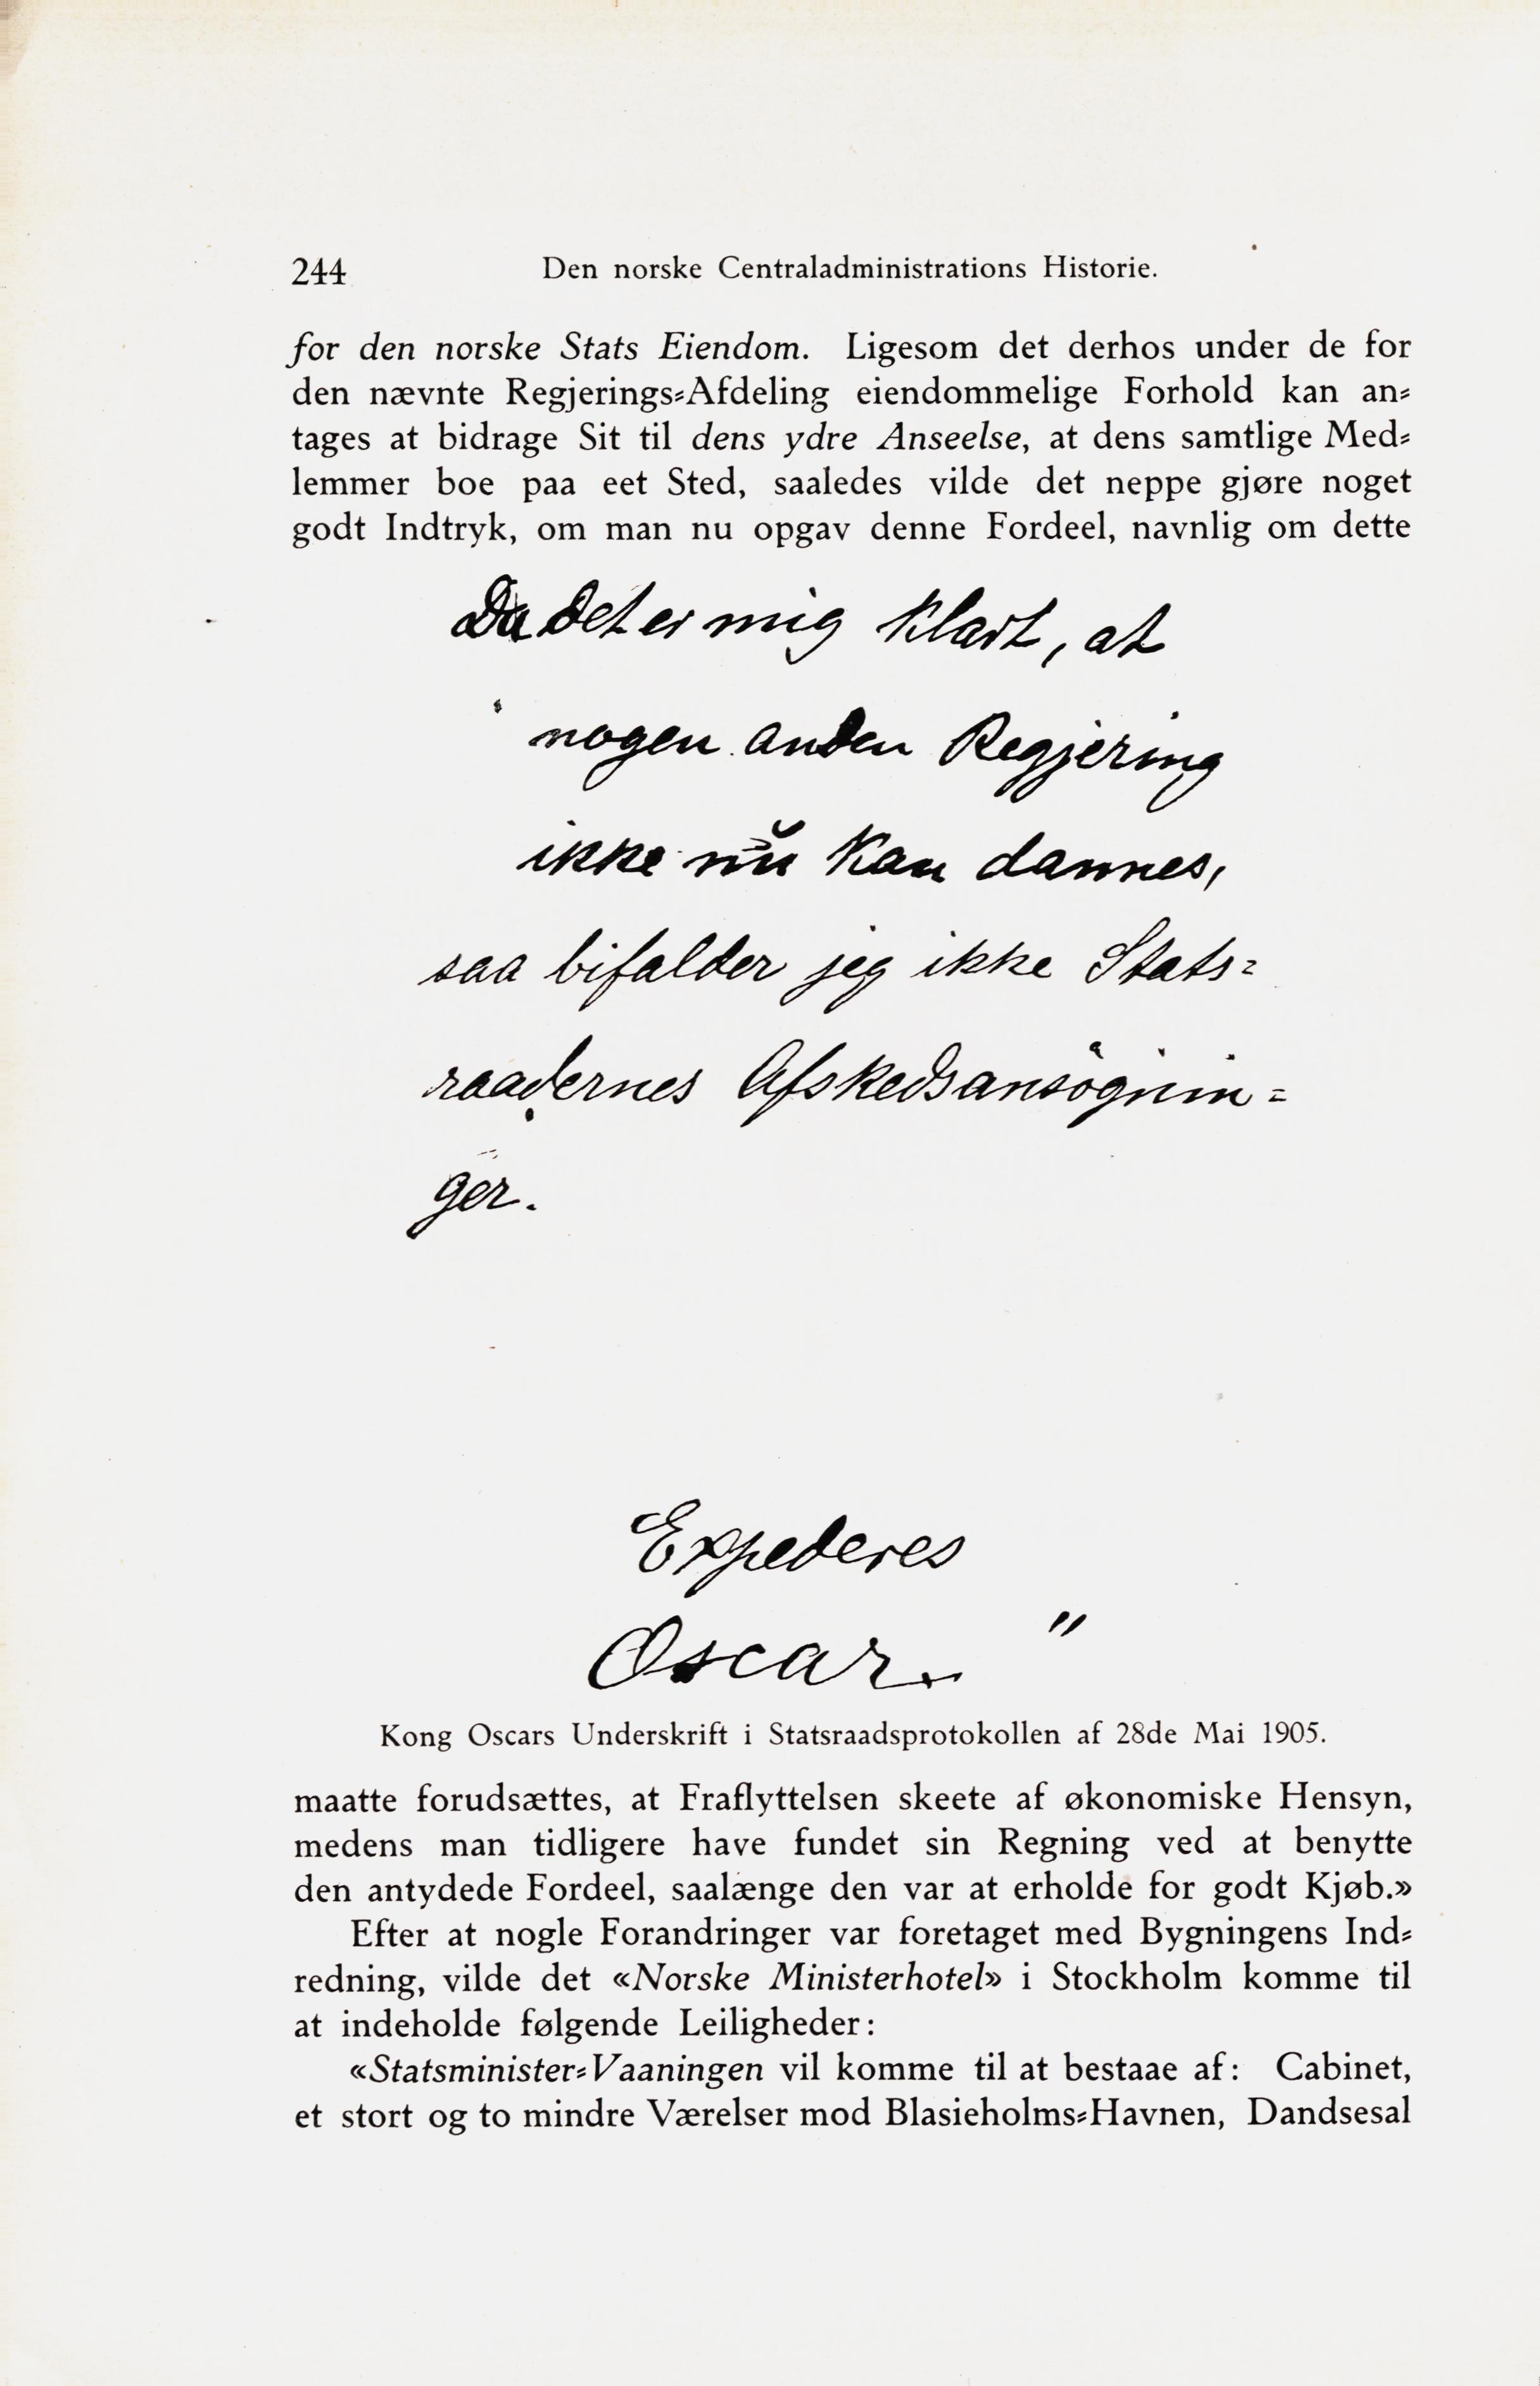 244 Den norske Centraladministrations Historie.
for den norske Stats Eiendom. Ligesom det derhos under de for
den nævnte Regjerings-Afdeling eiendommelige Forhold kan an-
tages at bidrage Sit til dens ydre Anseelse, at dens samtlige Med-
lemmer boe paa eet Sted, saaledes vilde det neppe gjøre noget
godt Indtryk, om man nu opgav denne Fordeel, navnlig om dette
Da det er mig klart, at
nogen anden Regjering
ikke nu kan dannes,
saa bifalder jeg ikke Stats=
raadernes Afskedsansögnin=
ger.
Expederes
Oscar "
Kong Oscars Underskrift i Statsraadsprotokollen af 28de Mai 1905.
maatte forudsættes, at Fraflyttelsen skeete af økonomiske Hensyn,
medens man tidligere have fundet sin Regning ved at benytte
den antydede Fordeel, saalænge den var at erholde for godt Kjøb.»
Efter at nogle Forandringer var foretaget med Bygningens Ind-
redning, vilde det «Norske Ministerhotel» i Stockholm komme til
at indeholde følgende Leiligheder:
«Statsminister-Vaaningen vil komme til at bestaae af: Cabinet,
et stort og to mindre Værelser mod Blasieholms-Havnen, Dandsesal